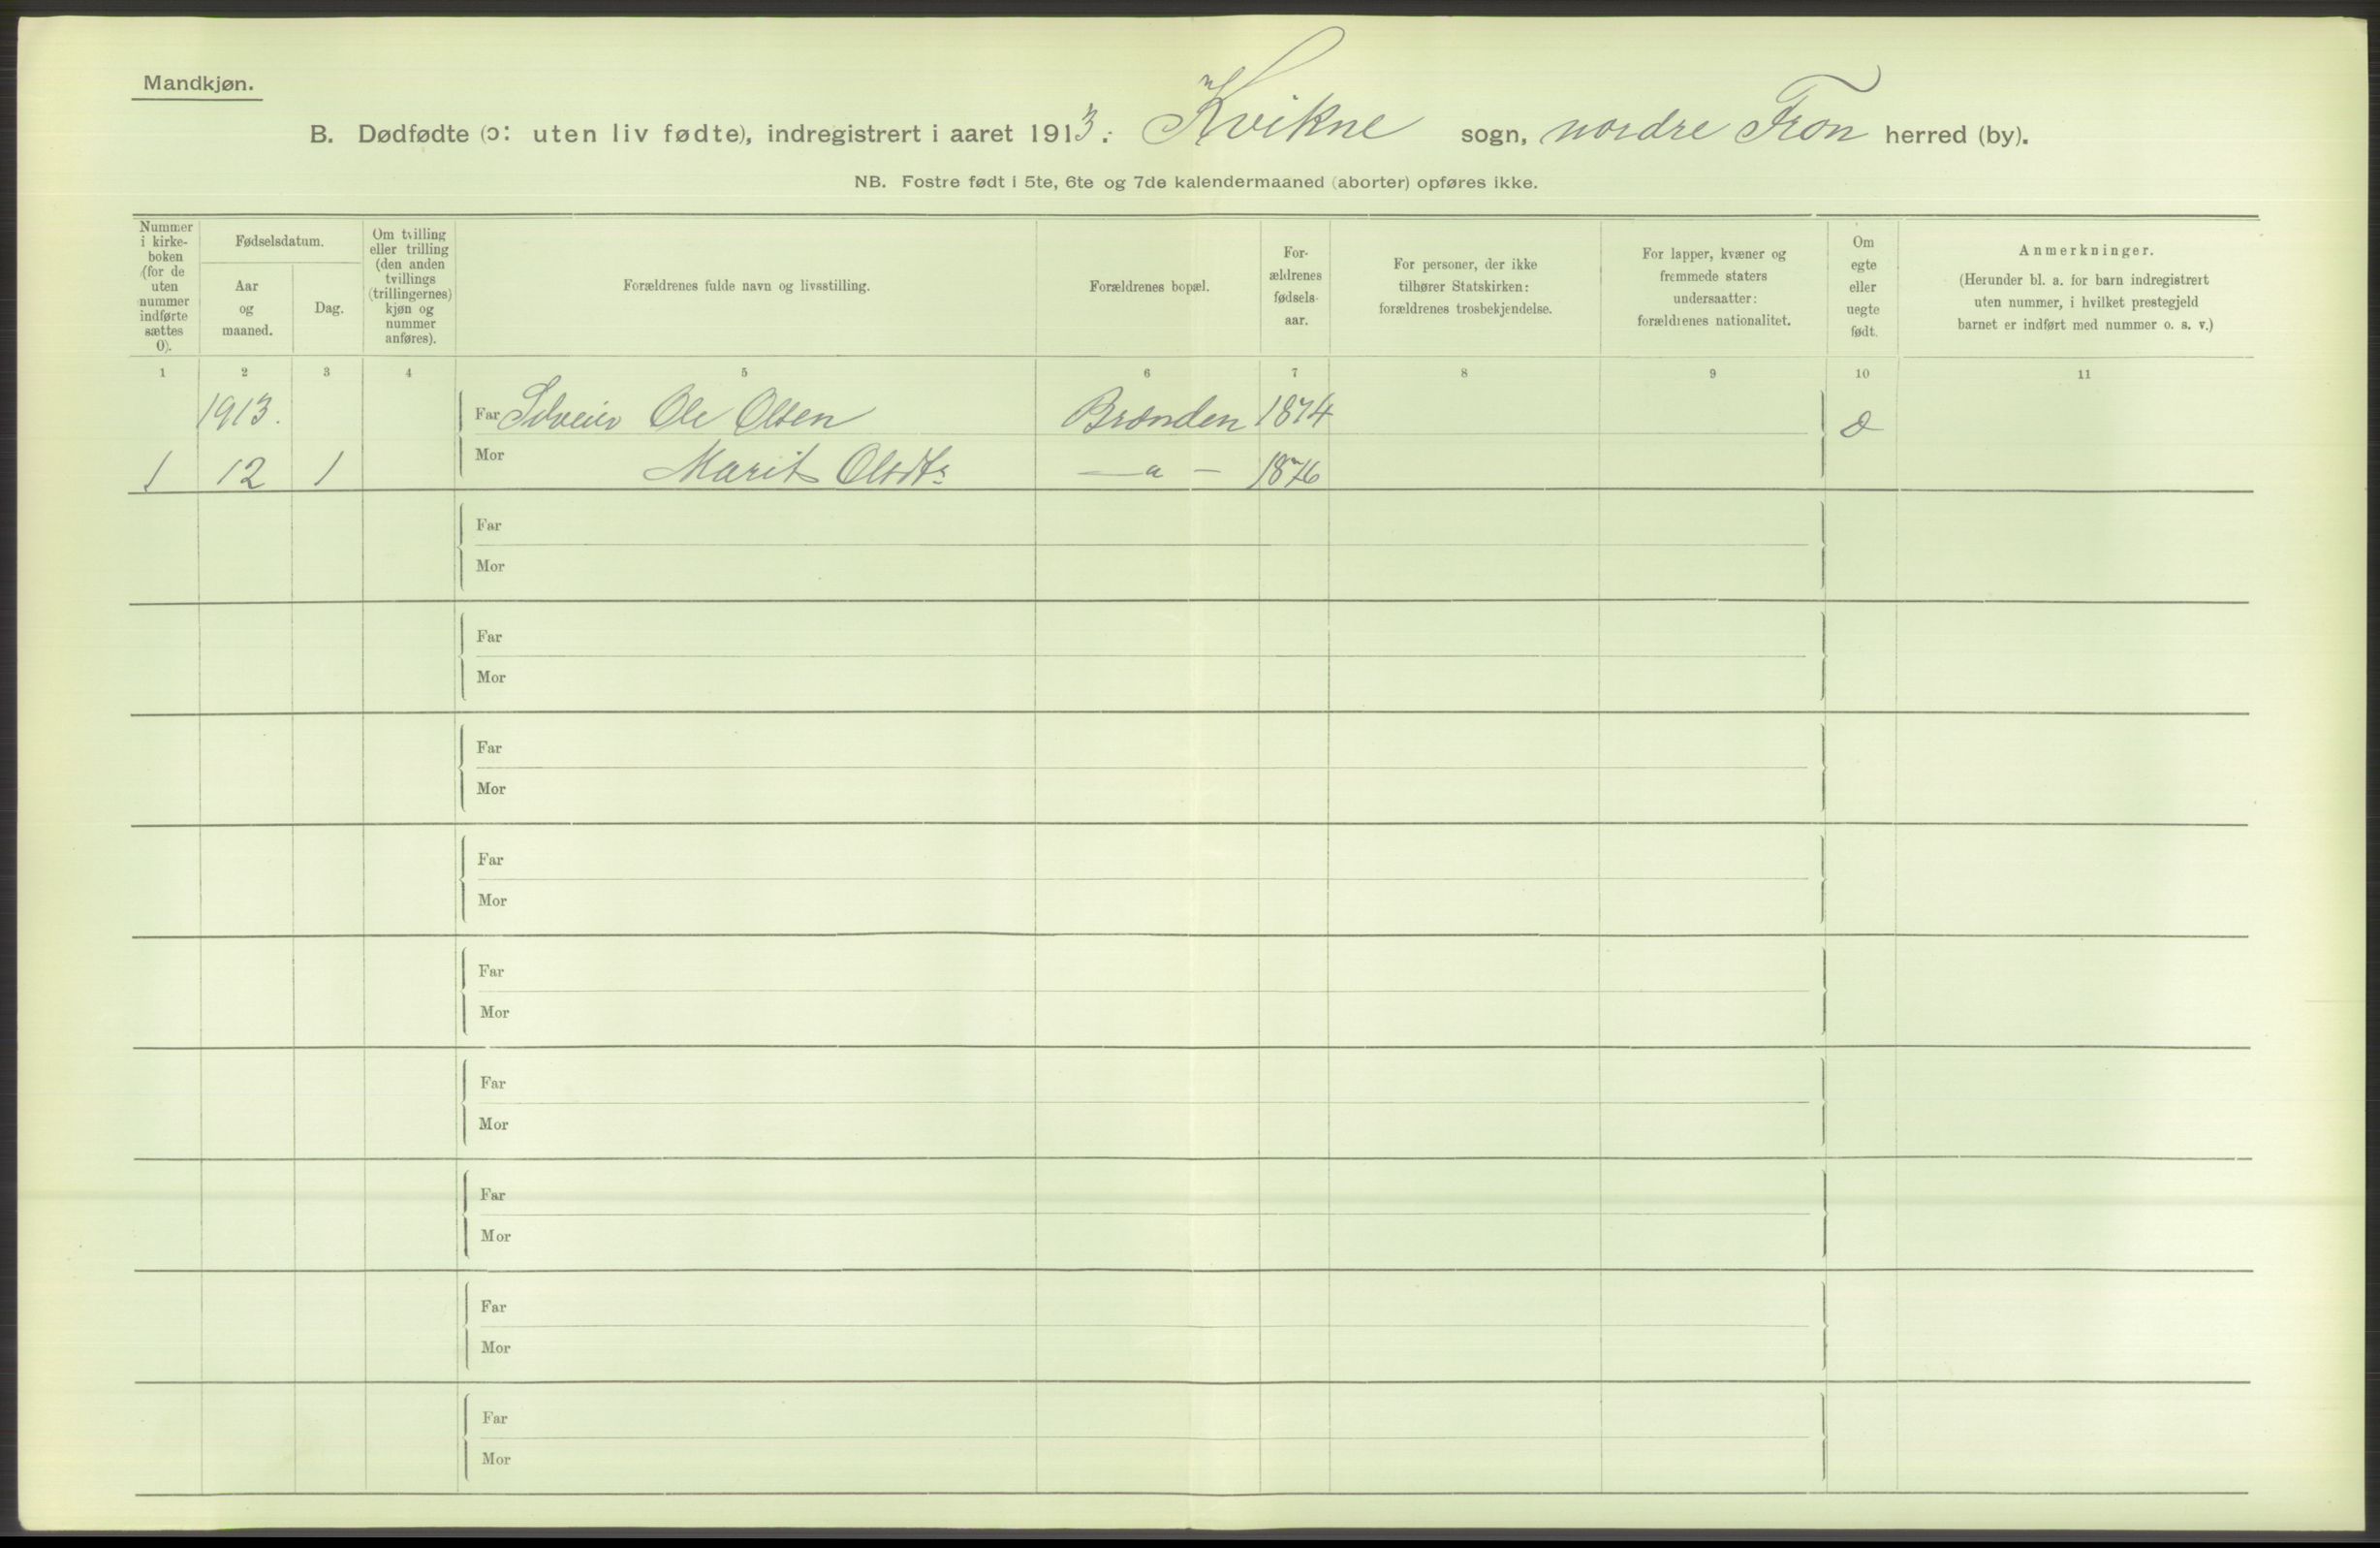 Mandkjøn.
B. Dødfødte (ɔ: uten liv fødte), indregistrert i aaret 1913: Kvikne sogn, nordre Fron herred (by).
NB. Fostre født i 5te, 6te og 7de kalendermaaned (aborter) opføres ikke.
Nummer i kirke-boken (for de uten nummer indførte sættes 0).
Fødselsdatum.
Aar og maaned.
Dag.
Om tvilling eller trilling (den anden tvillings (trillingernes) kjøn og nummer anføres).
Forældrenes fulde navn og livsstilling.
Forældrenes bopæl.
For-ældrenes fødsels-aar.
For personer, der ikke tilhører Statskirken: forældrenes trosbekjendelse.
For lapper, kvæner og fremmede staters undersaatter: forældrenes nationalitet.
Om egte eller uegte født.
Anmerkninger.
(Herunder bl. a. for barn indregistrert uten nummer, i hvilket prestegjeld barnet er indført med nummer o. s. v.)
1 2 3 4 5 6 7 8 9 10 11
1913. Far Ole Olsen Brænden 1874
1 12 1 Mor Marit Olsdtr — " — 1876
Far
Mor
Far
Mor
Far
Mor
Far
Mor
Far
Mor
Far
Mor
Far
Mor
Far
Mor
Far
Mor